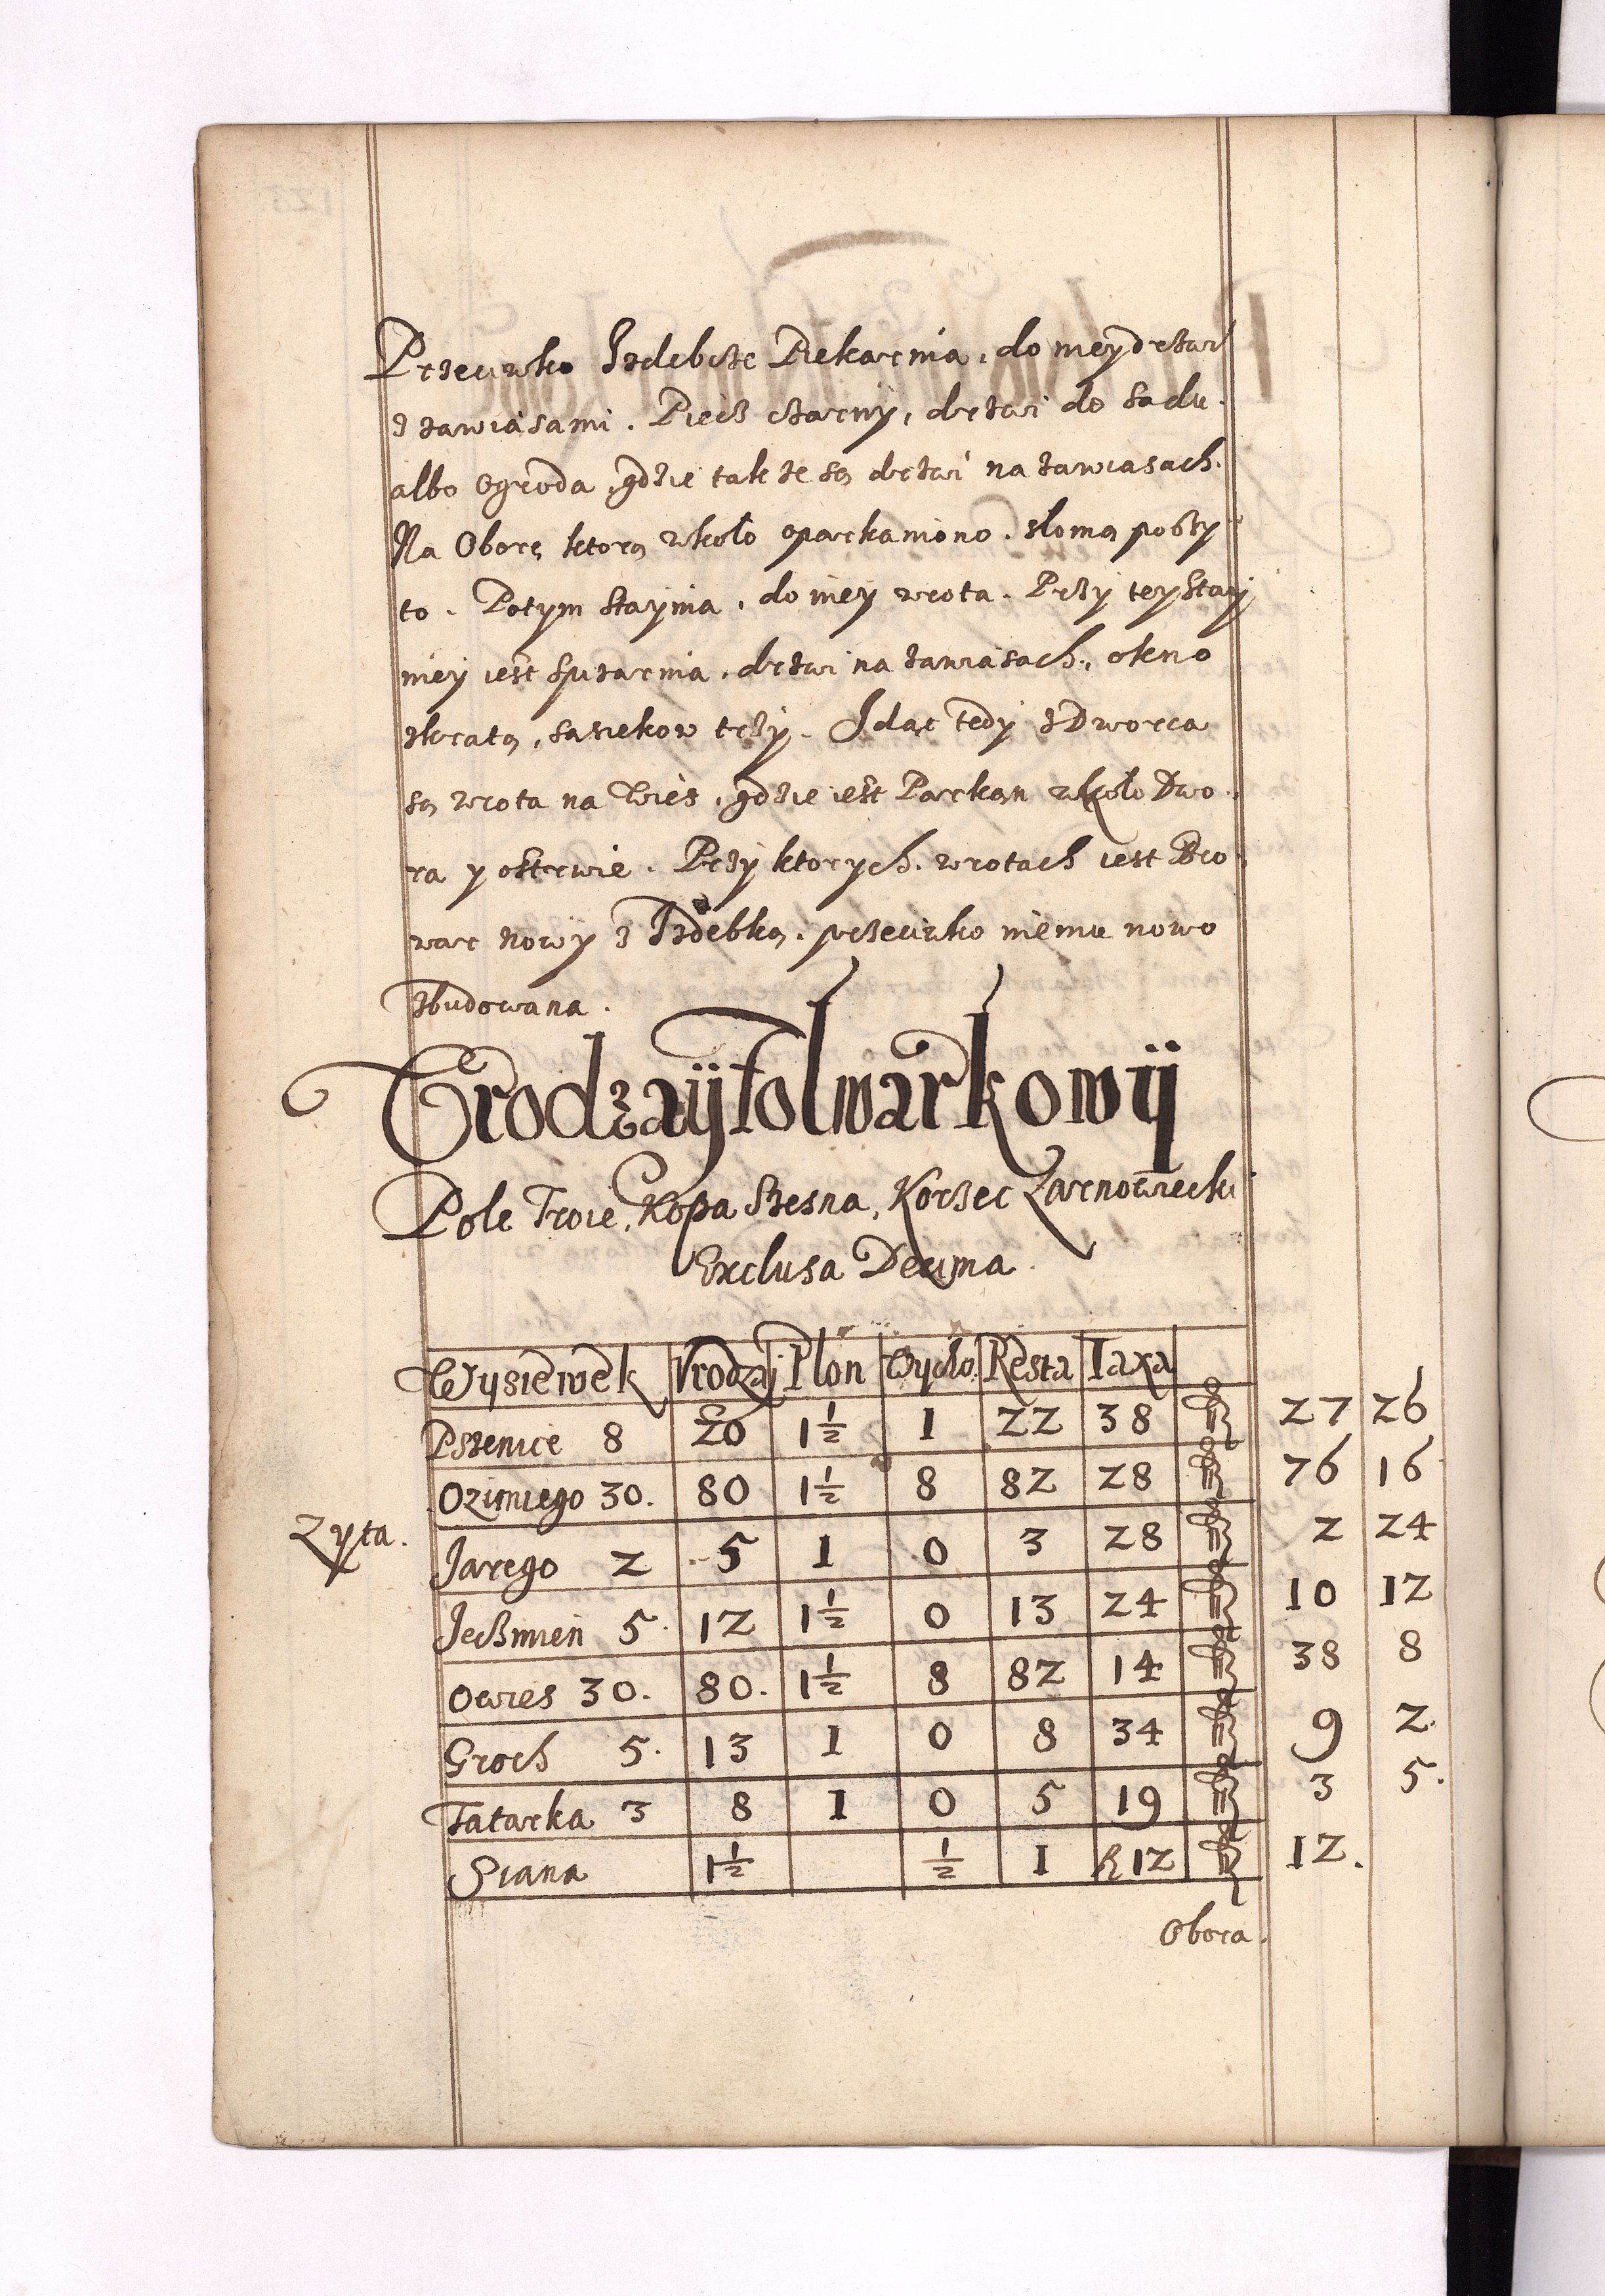 Przeciwko Izdebcze Piekarnia, do niey drzwi
z zawiasami. Piecz czarny, drzwi do sadu.
albo Ogroda, gdzie takze są drzwi na zawiasach.
Na Oborę ktorą wkoło oparkaniono. słomą poszy
to. Potym staynia, do niey wrota. Przy tey Stay
niey iest spizarnia, drzwi na zawiasach, okno
zkratą, sąsiekow trzy. Idąc tedy z Dworca
są wrota na Wies, gdzie iest Parkan wkoło Dwo
ra y ostrwie. Przy ktorych wrotach iest Bro
war nowy z Izdebką, przeciwko niemu nowo
zbudowana.
Urodzay folwarkowy
Pole Troie, Kopa Szesna, Korzec Zarnowiecki
Exclusa Decima.
Wysiewek Vrodzay Plon Bydło Resta Taxa
Pszenice 8 20 1½ 1 22 38 27 26
Ozimiego 30. 80 1½ 8 82 28 76 16
Zyta.
Jarego 2 5 1 0 3 28 2 24
Jeczmień 5. 12 1½ 0 13 24 10 12
Owies 30. 80. 1½ 8 82 14 38 8
Groch 5. 13 1 0 8 34 9 2.
Tatarka 3 8 1 0 5 19 3 5.
Siana 1½ ½ 1 12 12.
Obora.